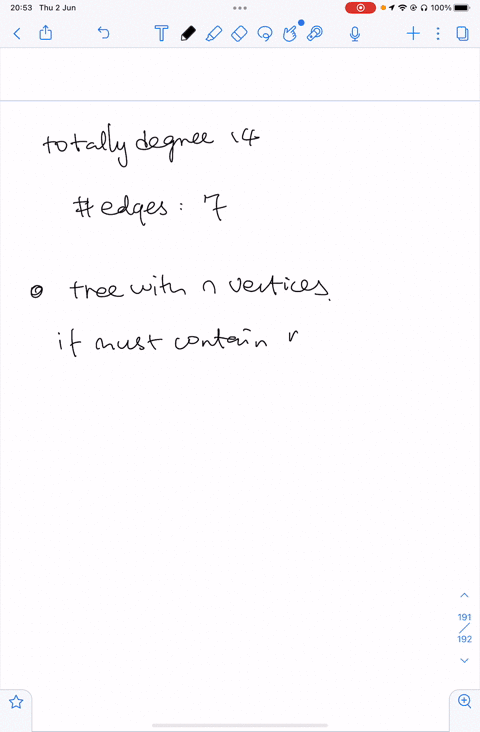 20:53 Thu 2 Jun
100%
T
totally degree 14
# edges: 7
tree with n vertices.
it must contain
191
192